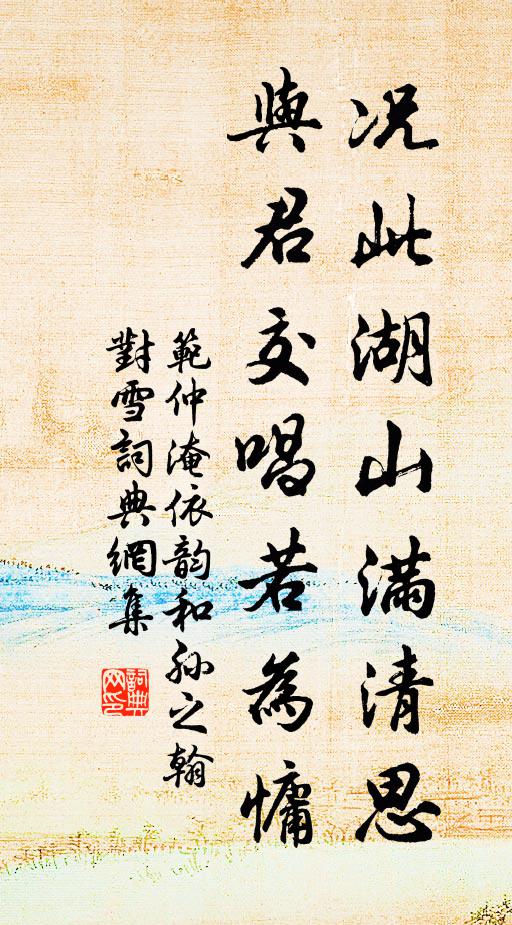 况此湖山滿清思
與君交唱若為慵
範仲淹依韵和孫之翰
對雪詞典網集
詞典
网印